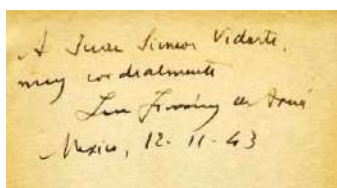 A Juan Simeon Vidarte,
muy cordialmente
Luis Jiménez de Asúa
Mexico, 12-11-43